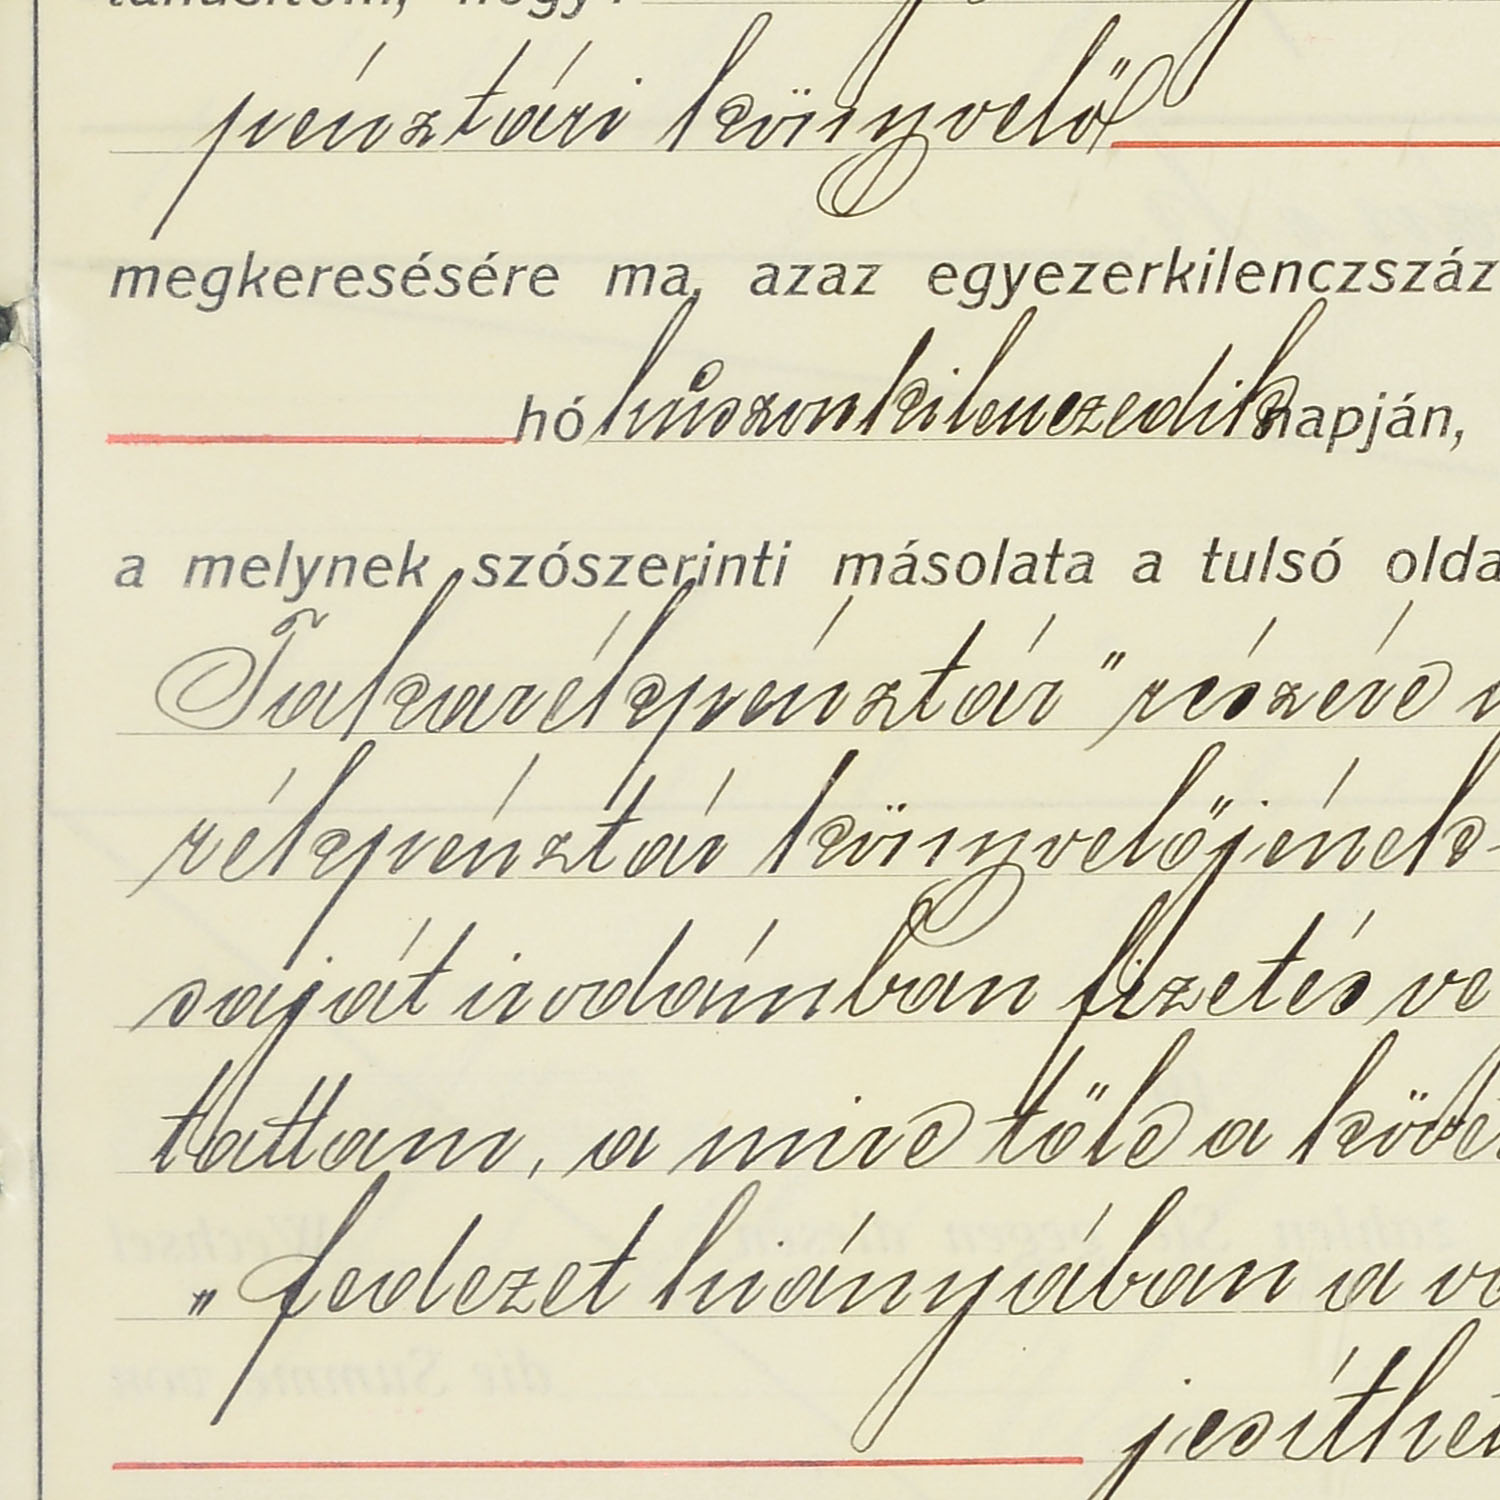 tanusítom, hogy:
pénztári könyvelő
megkeresésére ma, azaz egyezerkilenczszáz
hó huszonkilenczedik napján,
a melynek szószerinti másolata a tulsó olda
Takarékpénztár" részére
rékpénztár könyvelőjének
saját irodámban fizetés ve
tattam, a mire tőle a köve
„fedezet hiányában a vá
jesíthet